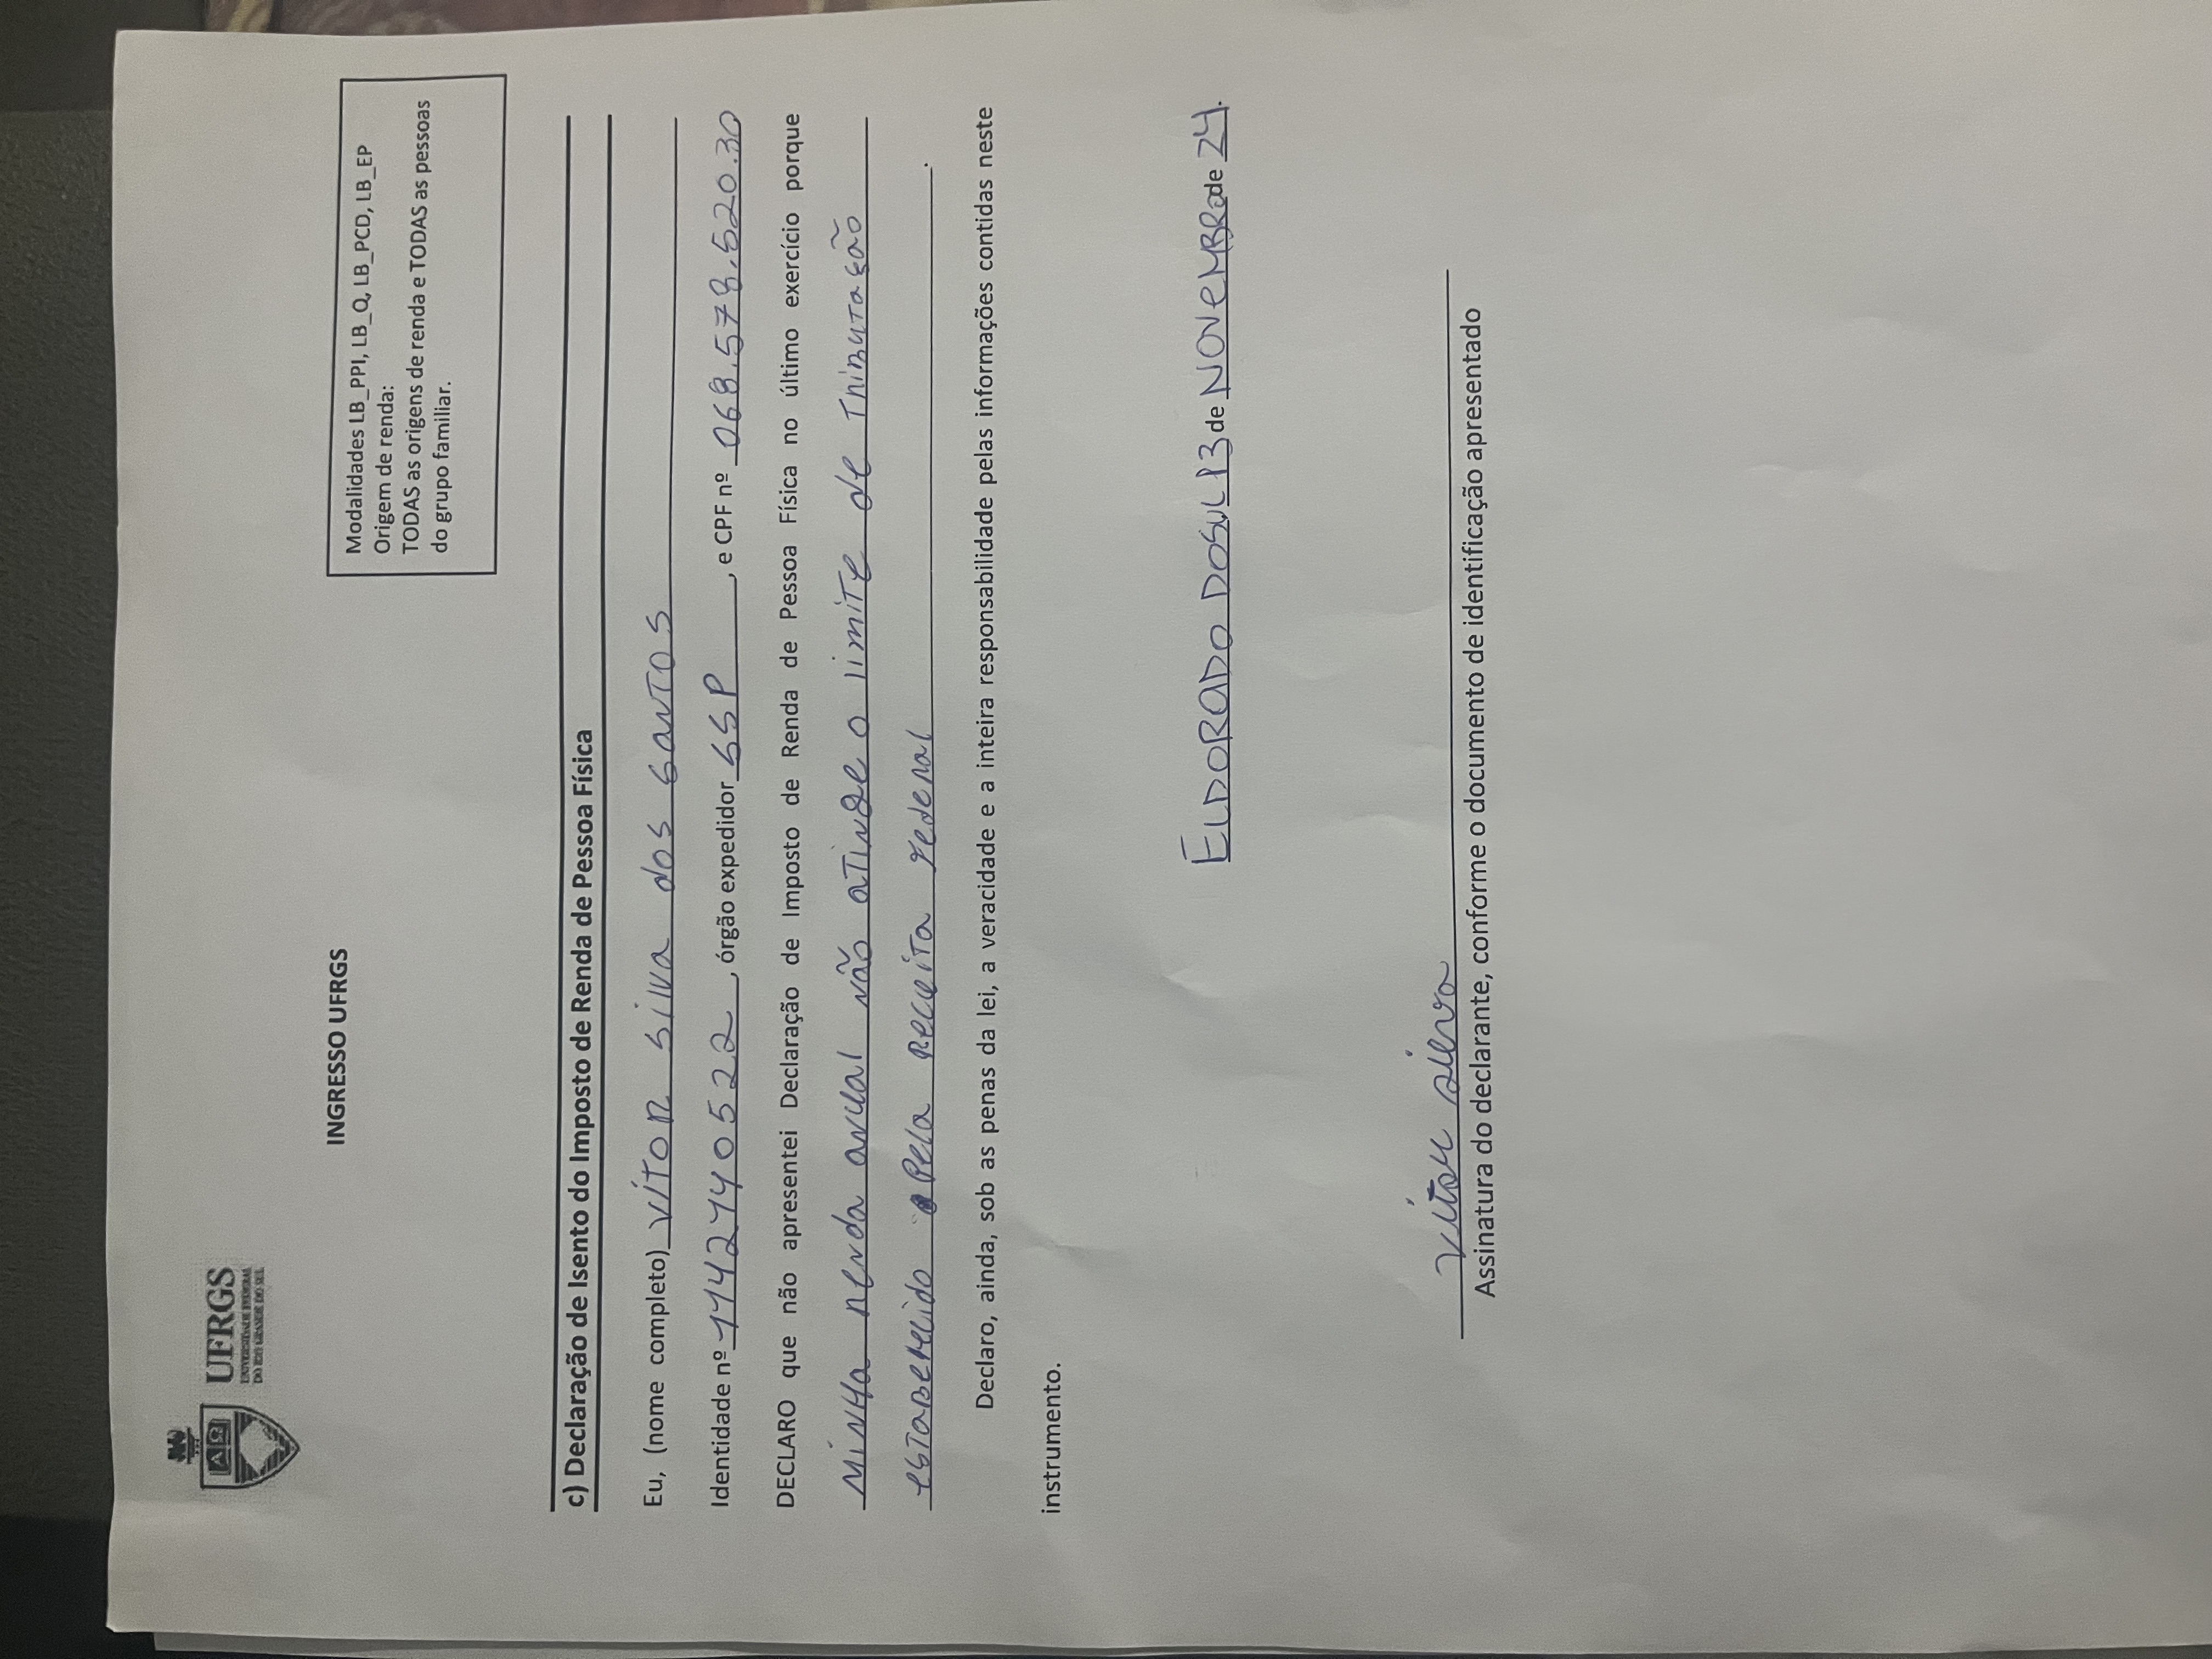 UFRGS
UNIVERSIDADE FEDERAL
DO RIO GRANDE DO SUL
INGRESSO UFRGS
Modalidades LB_PPI, LB_Q, LB_PCD, LB_EP
Origem de renda:
TODAS as origens de renda e TODAS as pessoas
do grupo familiar.
c) Declaração de Isento do Imposto de Renda de Pessoa Física
Eu, (nome completo) VÍTOR SILVA dos SANTOS
Identidade nº 1142140522, órgão expedidor SSP, e CPF nº 068.578.520.30
DECLARO que não apresentei Declaração de Imposto de Renda de Pessoa Física no último exercício porque
MINHA renda anual não ATINGE o limiTE de TRIBUTAção
esTABelecido Pela ReceiTA Federal.
Declaro, ainda, sob as penas da lei, a veracidade e a inteira responsabilidade pelas informações contidas neste
instrumento.
ELDORADO DO SUL 13 de NOVEMBRO de 24.
Vítor Silva
Assinatura do declarante, conforme o documento de identificação apresentado